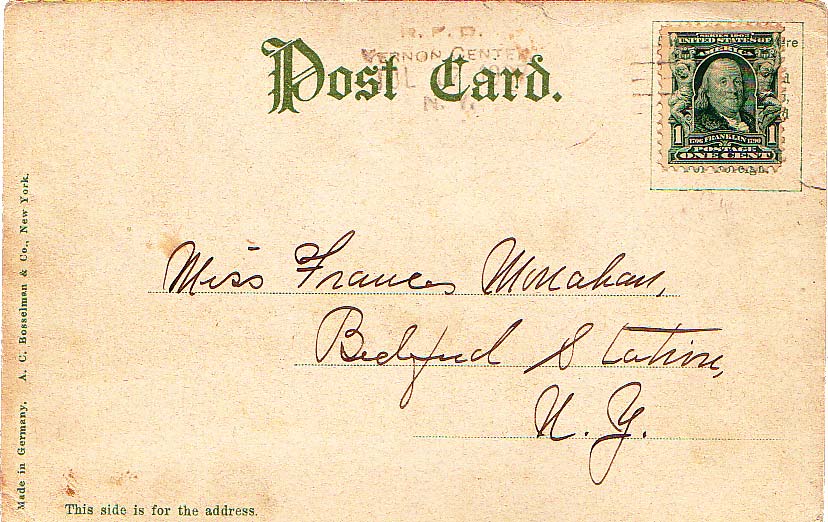 R. F. D.
VERNON CENTER
N. Y.
Post Card.
SERIES 1902
UNITED STATES OF
AMERICA
1 1706 FRANKLIN 1790 1
POSTAGE
ONE CENT
Miss Frances Monahan,
Bedford Station,
N. Y.
Made in Germany. A. C. Bosselman & Co., New York.
This side is for the address.